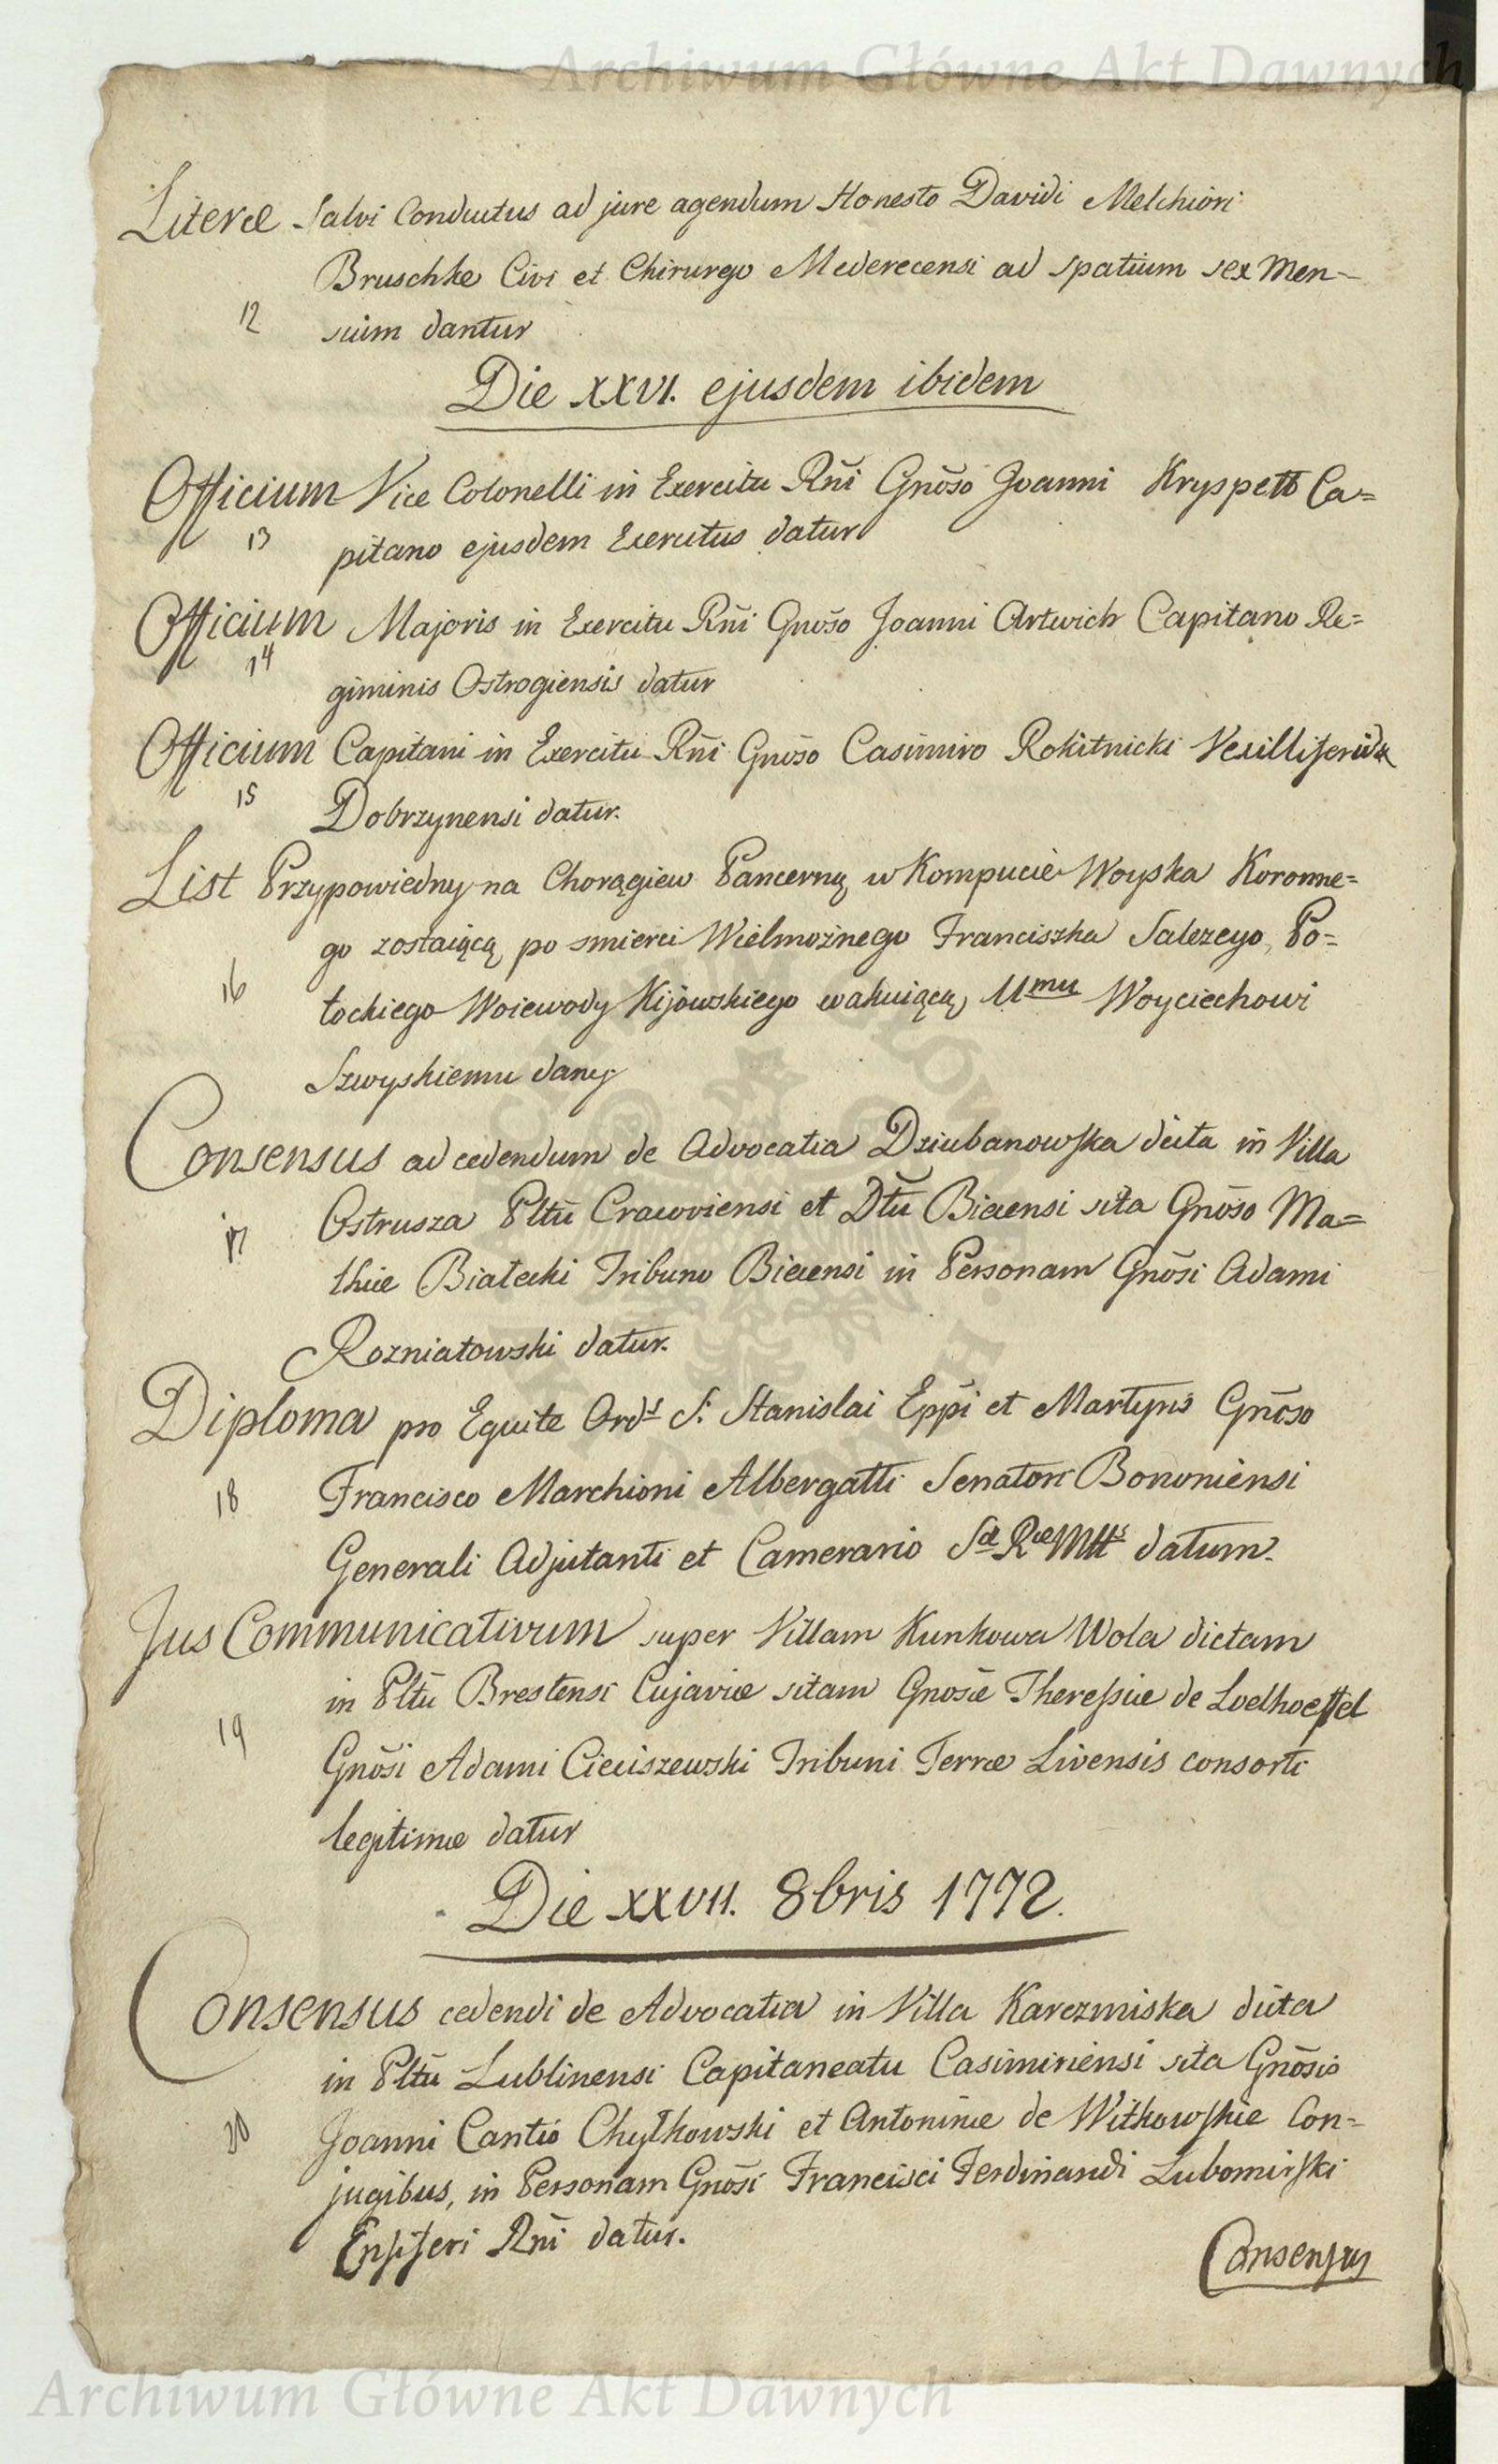 Archiwum Główne Akt Dawnych
Literæ Salvi Conductus ad jure agendum Honesto Davidi Melchiori
Bruschke Civi et Chirurgo Mederecensi ad spatium sex Men-
12 sium dantur
Die XXVI. ejusdem ibidem
Officium Vice Colonelli in Exercitu Rñi Gnõso Joanni Kryspett Ca=
13 pitano ejusdem Exercitus datur
Officium Majoris in Exercitu Rñi Gnõso Joanni Artwich Capitano Re=
14 giminis Ostrogiensis datur
Officium Capitani in Exercitu Rñi Gnõso Casimiro Rokitnicki
15 Dobrzynensi datur.
List Przypowiedny na Chorągiew Pancerną w Kompucie Woyska Koronne=
go zostaiącą, po smierci Wielmożnego Franciszka Salezego, Po=
16 tockiego Woiewody Kijowskiego wakuiącą, Umu Woyciechowi
Szwyskiemu dany
Consensus ad cedendum de Advocatia Dziubanowska dicta in Villa
Ostrusza Pltũ Cracoviensi et Dtũ Biecensi sita Gnõso Ma=
17 thiæ Białecki Tribuno Biecensi in Personam Gnõsi Adami
Rozniatowski datur.
Diploma pro Equite Ords S. Stanislai Eppi et Martyris Gnõso
18 Francisco Marchioni Albergatti Senatori Bononiensi
Generali Adjutanti et Camerario Sæ Ræ Mtts datum.
Jus Communicativum super Villam Kunkowa Wola dictam
in Pltũ Brestensi Cujaviæ sitam Gnosæ Theressiæ de Loelhoeffel
19 Gnõsi Adami Cieciszewski Tribuni Terræ Livensis consorti
legitimæ datur
Die XXVII. 8bris 1772.
Consensus cedendi de Advocatia in Villa Karczmiska dicta
in Pltũ Lublinensi Capitaneatu Casimiriensi sita Gnõsis
20 Joanni Cantio Chylkowski et Antoninæ de Witkowskie Con-
jugibus, in Personam Gnõsi Francisci Ferdinandi Lubomirski
Ensiferi Rñi datus.
Consensus
Archiwum Główne Akt Dawnych